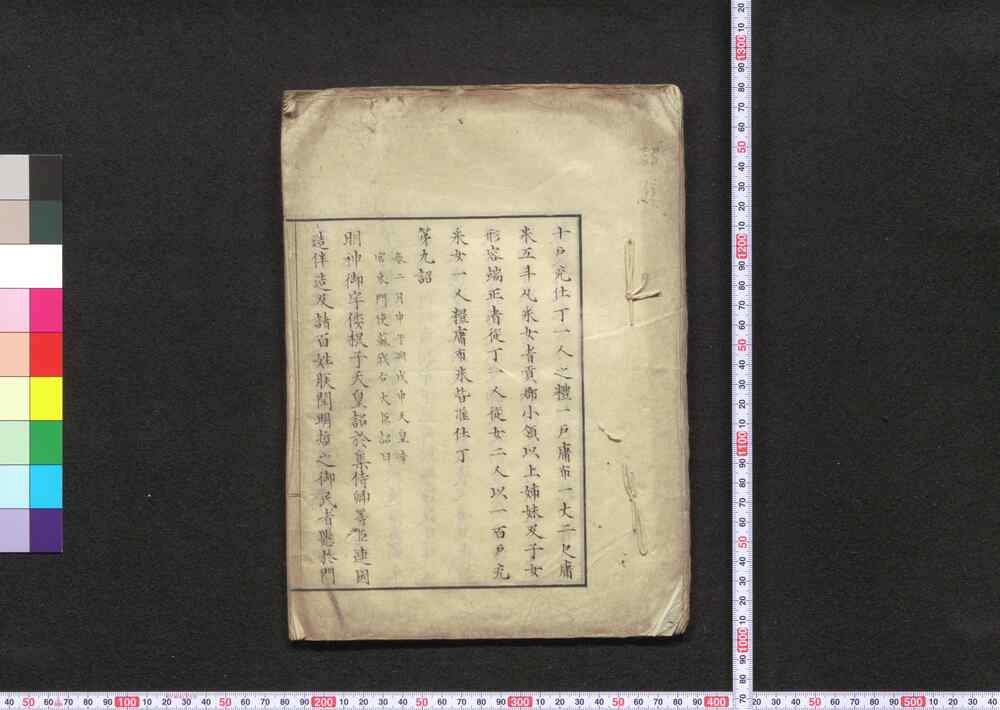 十戸充仕丁一人之糧一戸庸布一丈二尺庸
米五斗凡采女者貢郡小領以上姉妹及子女
形容端正者従丁一人従女二人以一百戸充
采女一人糧庸布米皆准仕丁
第九詔
春二月甲午朔戊申天皇幸
宮東門使蘇我右大臣詔曰
明神御宇倭根子天皇詔於集侍卿等臣連国
造伴造及諸百姓朕聞明哲之御民者懸於門